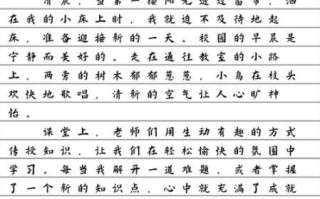 清晨，当第一缕阳光透过窗帘，洒
在我的小床上时，我就迫不及待地起
床，准备迎接新的一天。校园的早晨是
宁静而美好的。走在通往教室的小路
上，两旁的树木郁郁葱葱，小鸟在枝头
欢快地歌唱，清新的空气让人心旷神
怡。
课堂上，老师们用生动有趣的方式
传授知识，让我们在轻松愉快的氛围中
学习。每当我解开一道难题，或者掌握
了一个新的知识点，心中就充满了成就